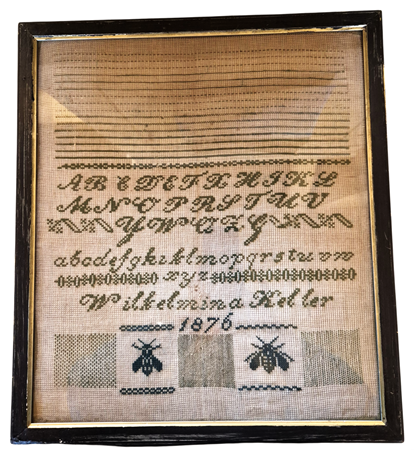 A B C D E F G H I K L
M N O P R S T U V
Y W
abcdefghiklmopqrstuvw
xyz
Wilhelmina Keller
1876